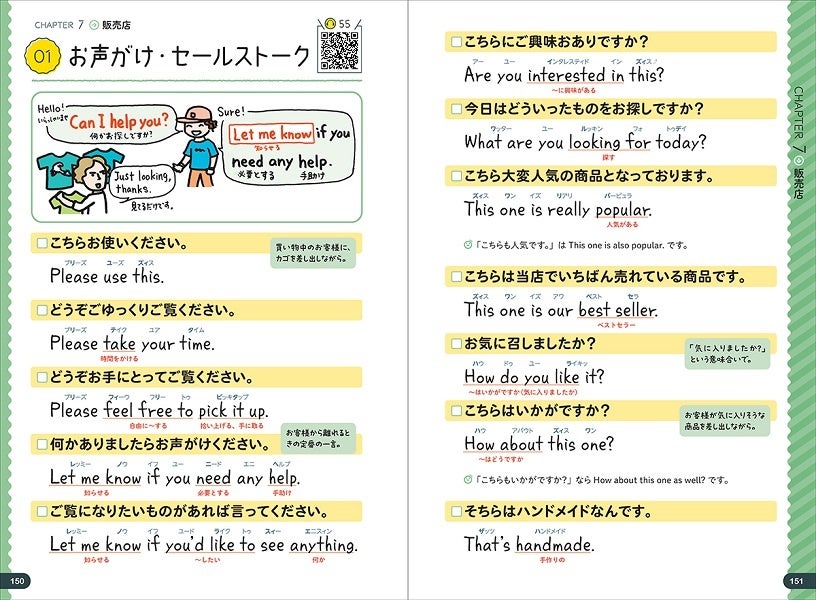 CHAPTER 7 販売店
55
01 お声がけ・セールストーク
Hello!
いらっしゃいませ
Can I help you?
何かお探しですか?
Just looking,
thanks.
見てるだけです。
Sure!
Let me know if you
知らせる
need any help.
必要とする 手助け
こちらお使いください。
買い物中のお客様に、
カゴを差し出しながら。
プリーズ ユーズ ズィス
Please use this.
どうぞごゆっくりご覧ください。
プリーズ テイク ユア タイム
Please take your time.
時間をかける
どうぞお手にとってご覧ください。
プリーズ フィーゥ フリー トゥ ピッキタップ
Please feel free to pick it up.
自由に〜する 拾い上げる、手に取る
何かありましたらお声がけください。
お客様から離れると
きの定番の一言。
レッミー ノウ イフ ユー ニード エニ ヘルプ
Let me know if you need any help.
知らせる 必要とする 手助け
ご覧になりたいものがあれば言ってください。
レッミー ノウ イフ ユード ライク トゥ スィー エニスィン
Let me know if you'd like to see anything.
知らせる 〜したい 何か
150
こちらにご興味おありですか?
アー ユー インタレスティド イン ズィス
Are you interested in this?
〜に興味がある
今日はどういったものをお探しですか?
ワッター ユー ルッキン フォ トゥデイ
What are you looking for today?
探す
こちら大変人気の商品となっております。
ズィス ワン イズ リアリ パーピュラ
This one is really popular.
人気がある
「こちらも人気です。」は This one is also popular. です。
こちらは当店でいちばん売れている商品です。
ズィス ワン イズ アワ ベスト セラ
This one is our best seller.
ベストセラー
お気に召しましたか?
「気に入りましたか?」
という意味合いで。
ハウ ドゥ ユー ライキッ
How do you like it?
〜はいかがですか(気に入りましたか)
こちらはいかがですか?
お客様が気に入りそうな
商品を差し出しながら。
ハウ アバウト ズィス ワン
How about this one?
〜はどうですか
「こちらもいかがですか?」なら How about this one as well? です。
そちらはハンドメイドなんです。
ザッツ ハンドメイド
That's handmade.
手作りの
CHAPTER 7 販売店
151